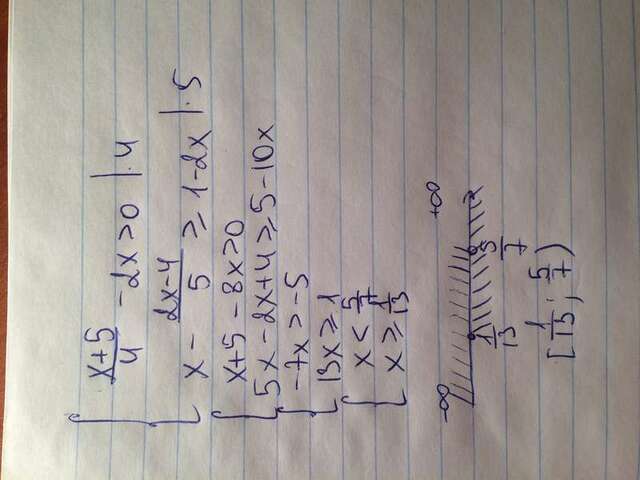 x+5/4 - 2x > 0 |·4
x - 2x-4/5 ≥ 1-2x |·5
x+5 - 8x > 0
5x - 2x + 4 ≥ 5 - 10x
-7x > -5
13x ≥ 1
x < 5/7
x ≥ 1/13
-∞ +∞
1/13 5/7
[1/13; 5/7)